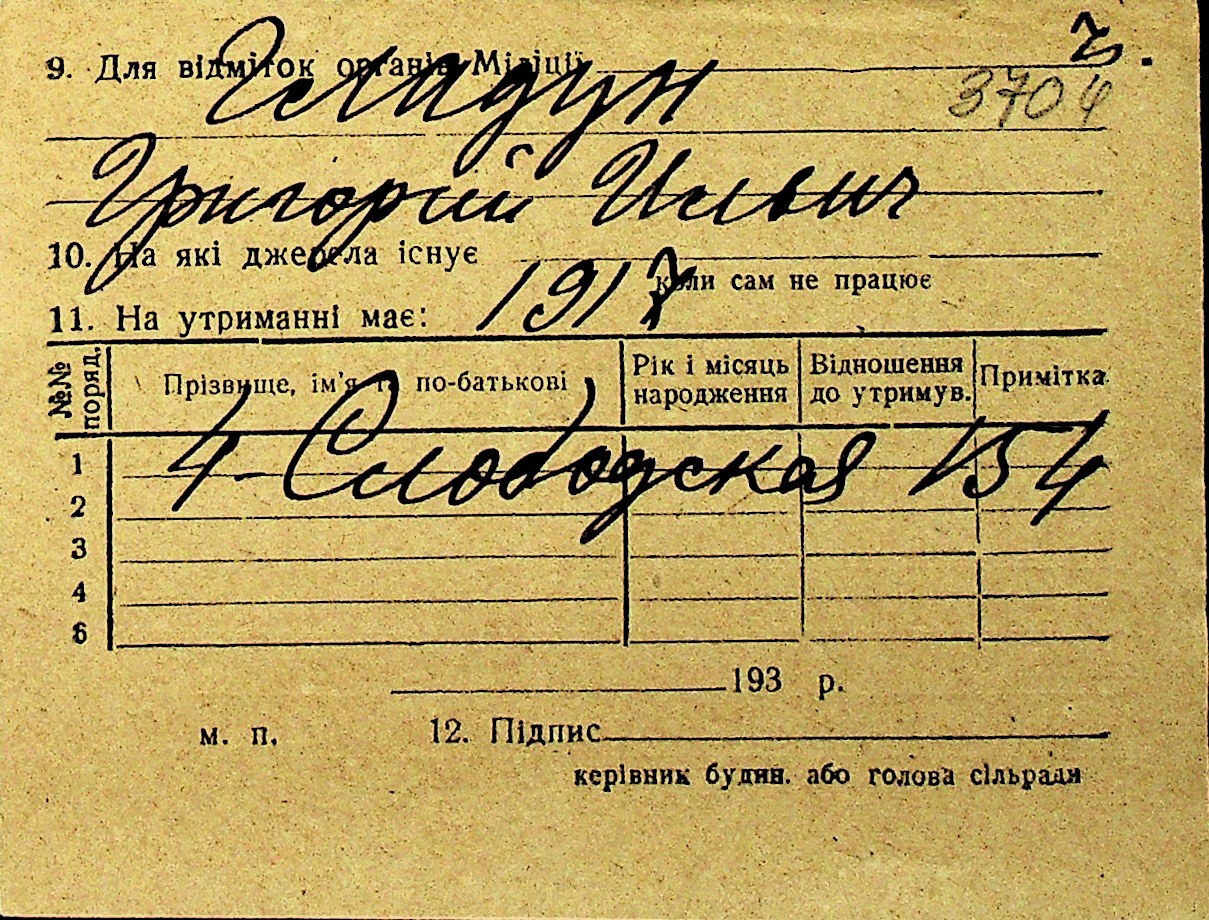 7.
9. Для відміток органів Міліції
3704
Григорий Ильич
10. На які джерела існує
коли сам не працює
1917
11. На утриманні має:
№№ поряд. Прізвище, ім'я та по-батькові Рік і місяць народження Відношення до утримув. Примітка
4 - Слободская 154
1
2
3
4
6
193 р.
м. п. 12. Підпис
керівник будин. або голова сільради